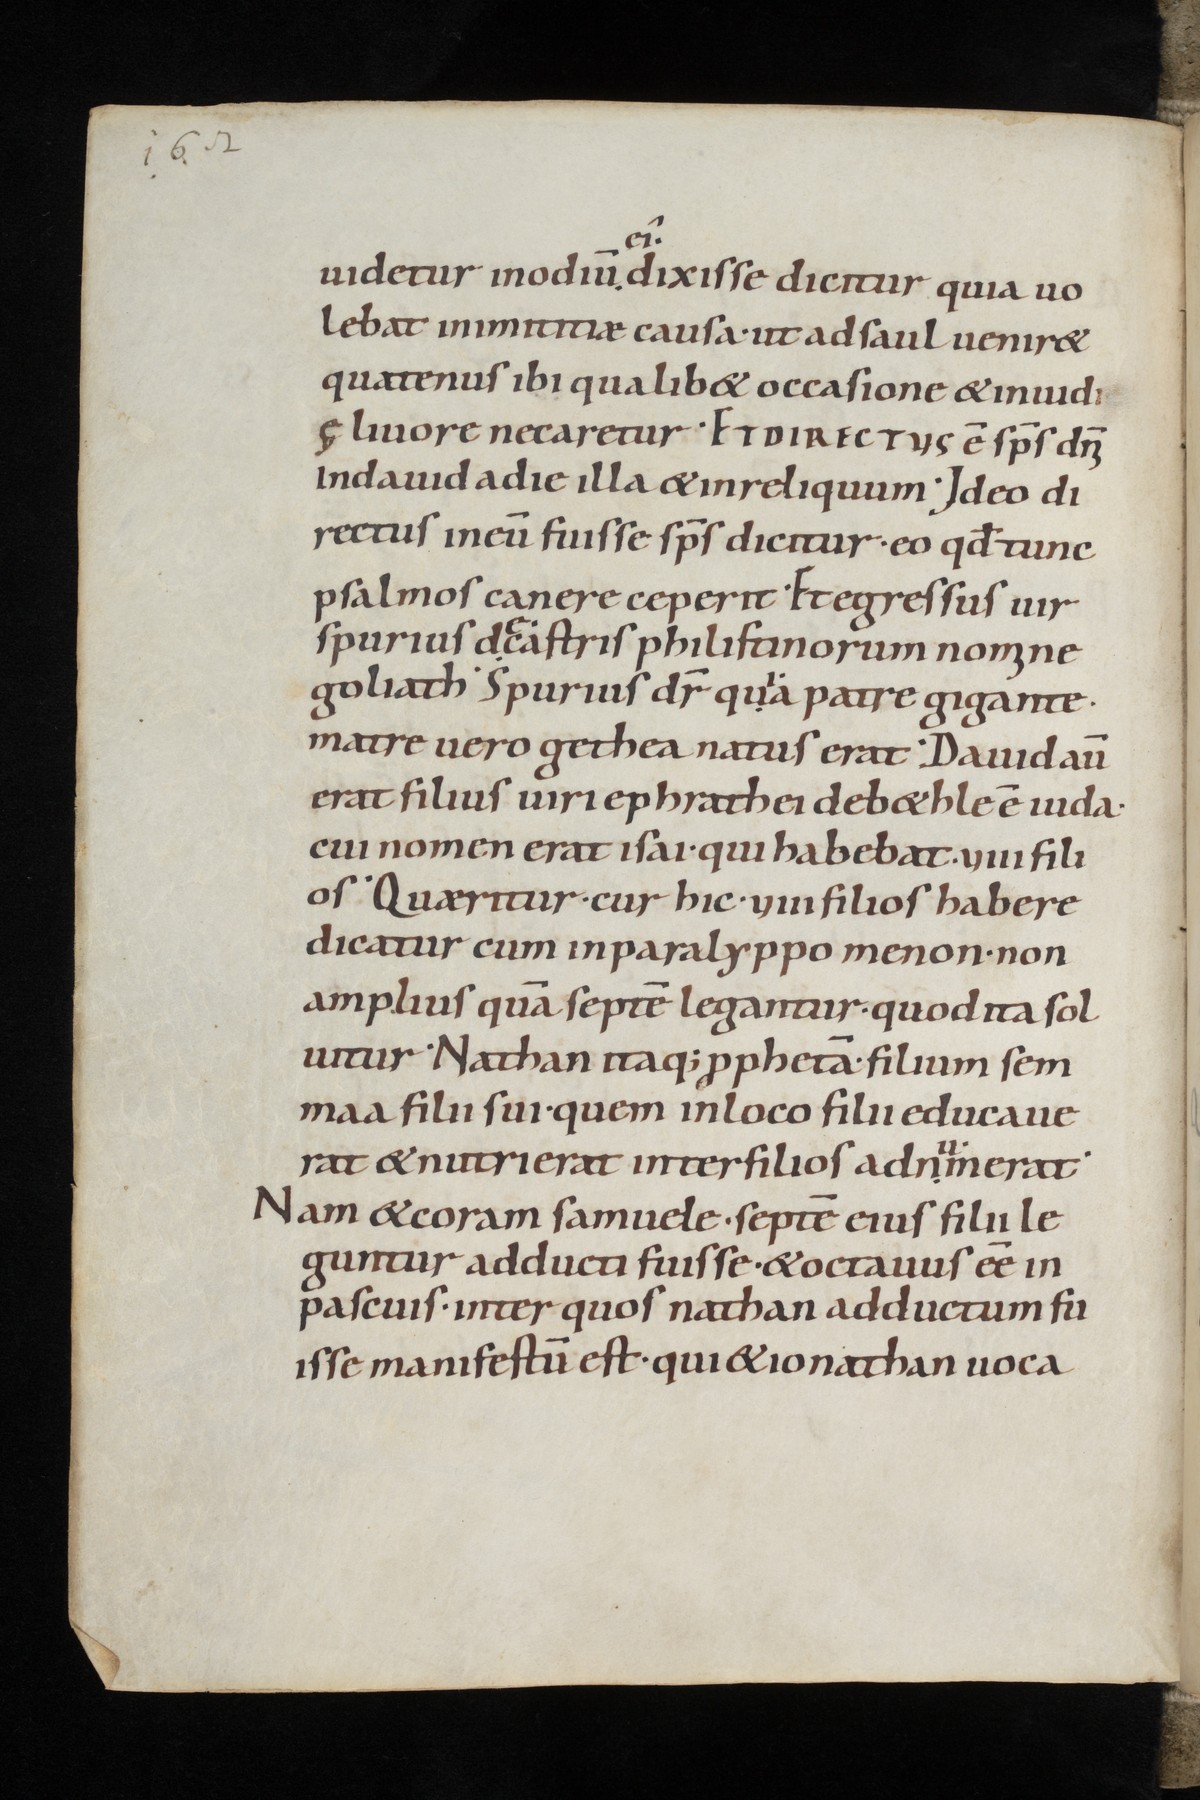 162
ei᷃.
uidetur inodiū. dixisse dicitur quia uo
lebat inimititiæ causa· ut ad saul uenir&
quatenus ibi qualib& occasione & inuidi
ę liuore necaretur· ET DIRECTUS ē sp̄s dn̄ı
In dauid a die illa & in reliquum· Ideo di
rectus in eū fuisse sp̄s dicitur· eo qđ tunc
psalmos canere ceperit· Et egressus uir
spurius de castris philistinorum nomine
goliath· Spurius dr̄ quia patre gigante·
matre uero gethea natus erat· Dauid aū
erat filius uiri ephrathei de b&hleē iuda·
cui nomen erat isai· qui habebat· uiii fili
os· Quæritur· cur hic· uiii filios habere
dicatur cum in paralyppo menon· non
amplius quā septē legantur· quod ita sol
uitur· Nathan itaq; pphetā· filium sem
maa filii sui· quem in loco filii educaue
rat & nutrierat inter filios adnumerat·
Nam & coram samuele· septē eius filii le
guntur adducti fuisse· & octauus eē in
pascuis· inter quos nathan adductum fu
isse manifestū est· qui & ionathan uoca